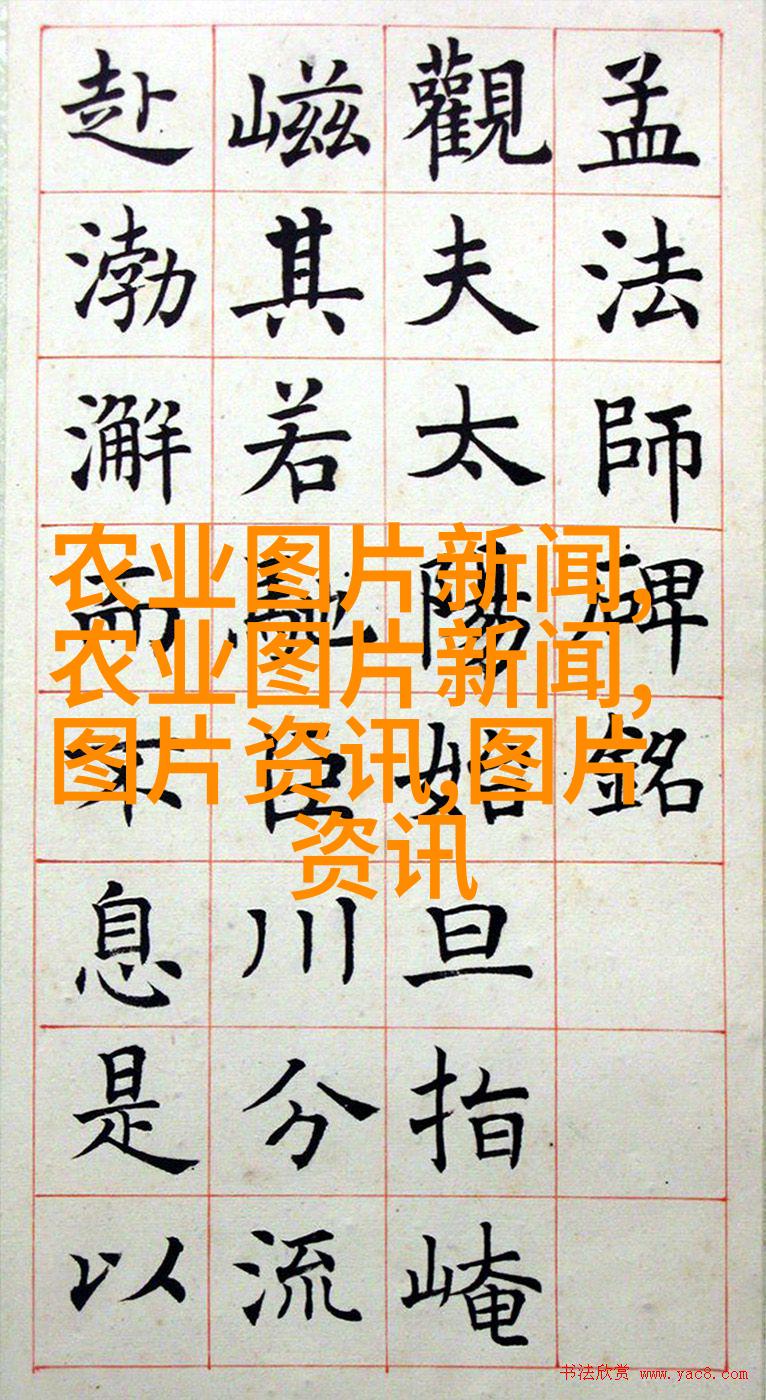 孟法師碑銘
觀夫太陽始旦指崦
嵫其若馳百川分流
赴渤澥而不息是以
农业图片新闻,
农业图片新闻,
图片资讯,图片
资讯
书法欣赏 www.yac8.com